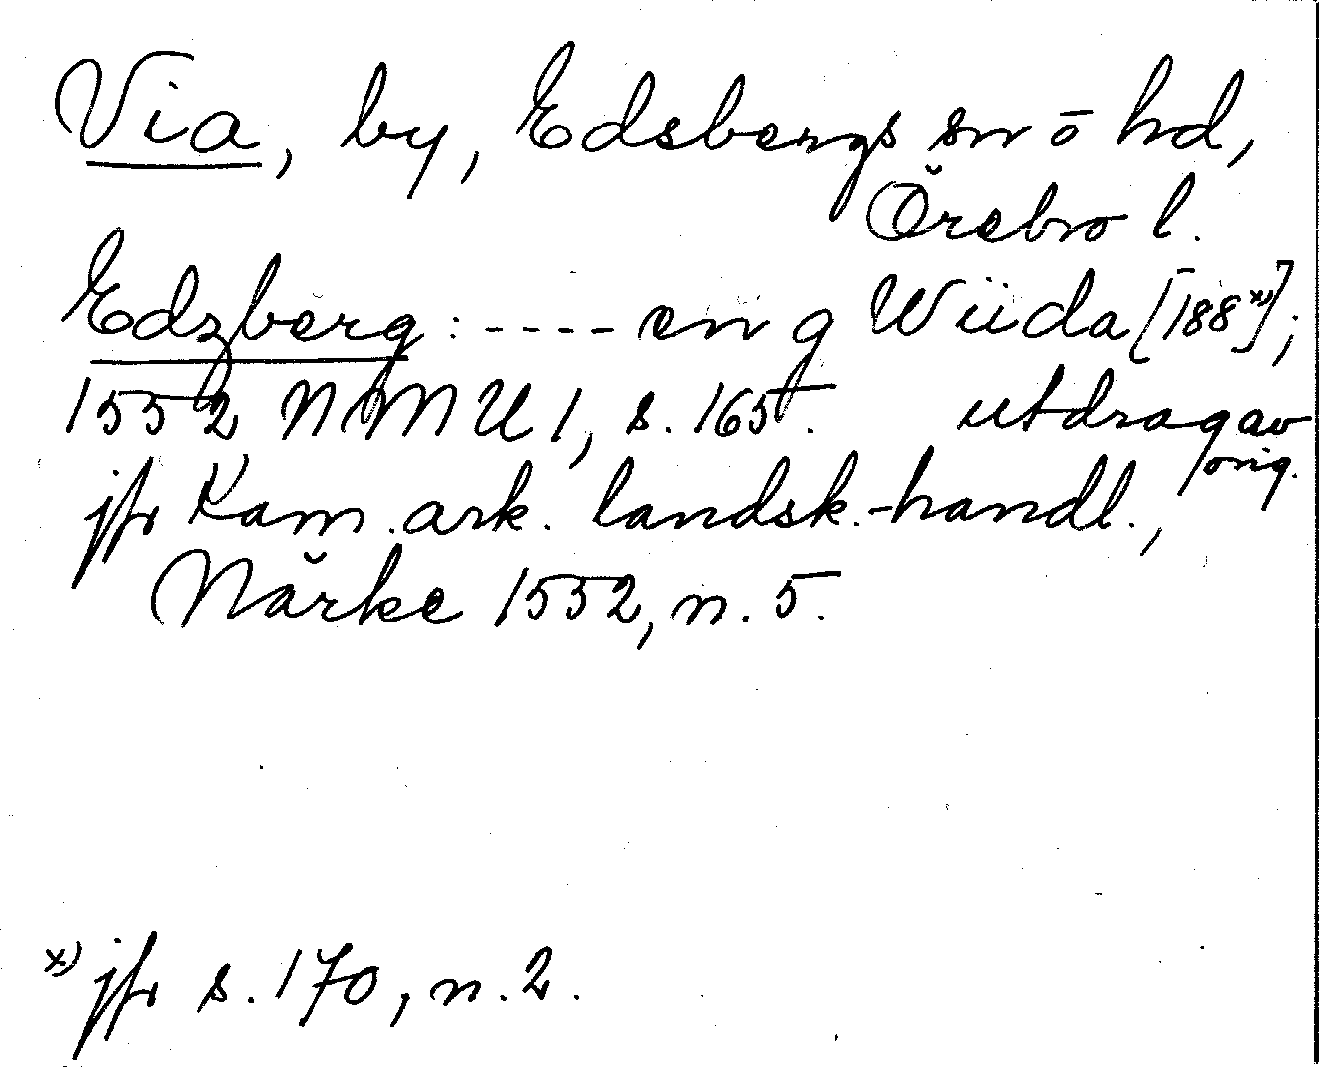 Via, by, Edsbergs sn o hd,
Örebro l.
Edzberg : ---- en g Wiida [188 x)];
1552 NMU 1, s. 165. utdrag av
orig.
jfr Kam. ark. landsk.-handl.,
Närke 1552, n. 5.
x) jfr s. 170, n. 2.